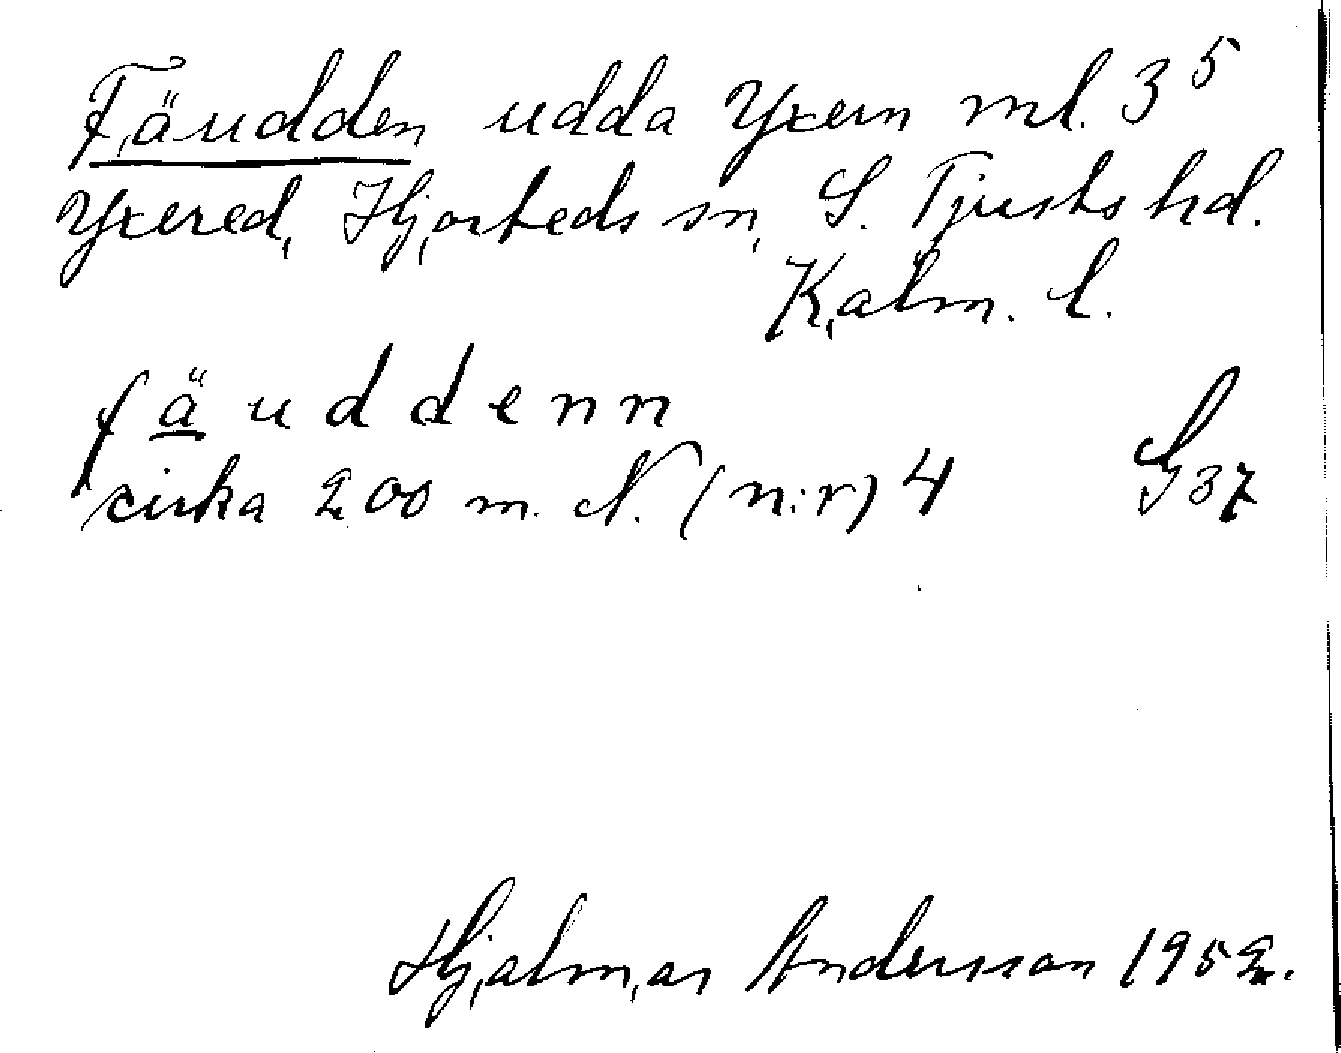 Fäudden udda Yxern ml. 3⁵
Yxered, Hjorteds sn, S. Tjusts hd.
Kalm. l.
fäuddenn
cirka 200 m. N. (n:r) 4 G37
Hjalmar Andersson 1952.